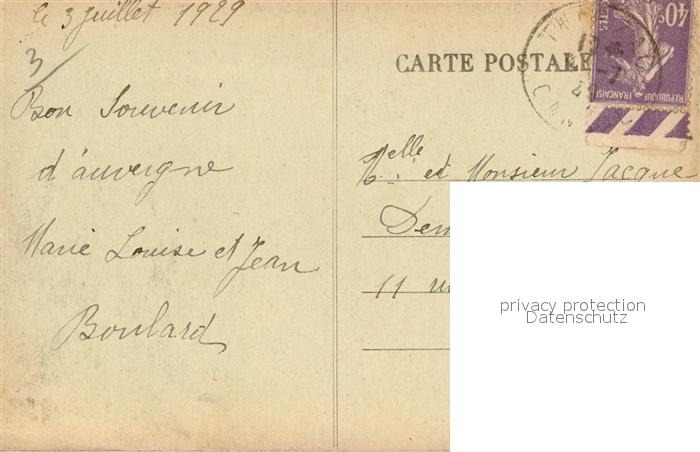 le 3 juillet 1929
3
Bon Souvenir
d'auvergne
Marie Louise et Jean
Boulard
CARTE POSTALE
40c
POSTES
REPUBLIQUE FRANÇAISE
Melle et Monsieur Jacque
11
privacy protection
Datenschutz